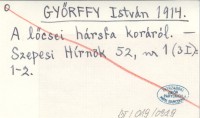 GYŐRFFY István 1914.
A lőcsei hársfa koráról. —
Szepesi Hírnök 52, nr 1 (3 I):
1-2.